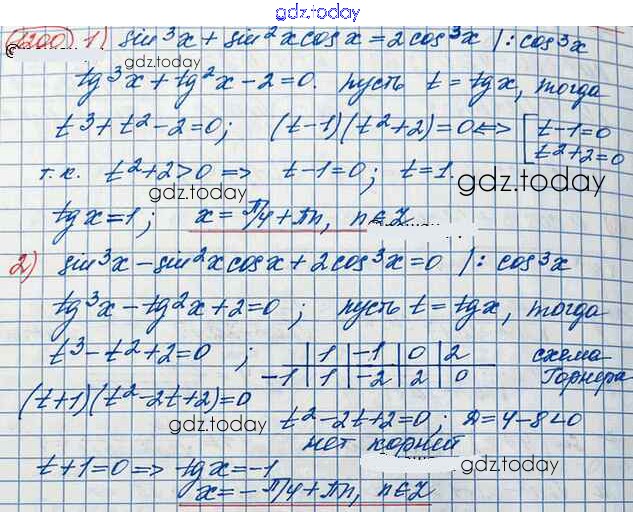 gdz.today
1200) 1) sin³x + sin²x cos x = 2cos³x |: cos³x
gdz.today
tg³x + tg²x - 2 = 0. пусть t = tg x, тогда
t³ + t² - 2 = 0; (t-1)(t²+2) = 0 <=> [ t-1=0
t²+2=0
т.к. t²+2>0 => t-1=0; t=1.
gdz.today
gdz.today
tg x = 1; x = π/4 + πn, n∈Z
2) sin³x - sin²x cos x + 2cos³x = 0 |: cos³x
tg³x - tg²x + 2 = 0; пусть t = tg x, тогда
t³ - t² + 2 = 0; 1 | -1 | 0 | 2 схема
-1 | 1 | -2 | 2 | 0 Горнера
(t+1)(t²-2t+2)=0
gdz.today
t²-2t+2=0; D=4-8<0
нет корней
gdz.today
t+1=0 => tg x = -1
gdz.today
x = -π/4 + πn, n∈Z